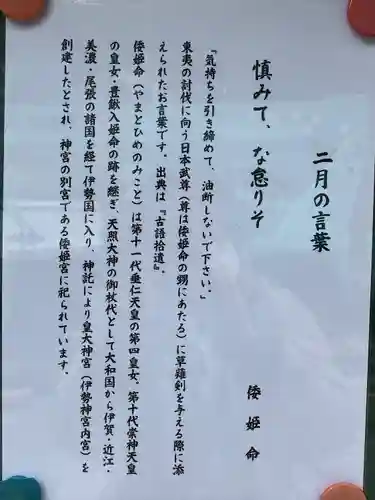 二月の言葉
慎みて、な怠りそ
倭姫命
『気持ちを引き締めて、油断しないで下さい。』
東夷の討伐に向う日本武尊（尊は倭姫命の甥にあたる）に草薙剣を与える際に添
えられたお言葉です。出典は『古語拾遺』。
倭姫命（やまとひめのみこと）は第十一代垂仁天皇の第四皇女。第十代崇神天皇
の皇女・豊鍬入姫命の跡を継ぎ、天照大神の御杖代として大和国から伊賀・近江・
美濃・尾張の諸国を経て伊勢国に入り、神託により皇大神宮（伊勢神宮内宮）を
創建したとされ、神宮の別宮である倭姫宮に祀られています。